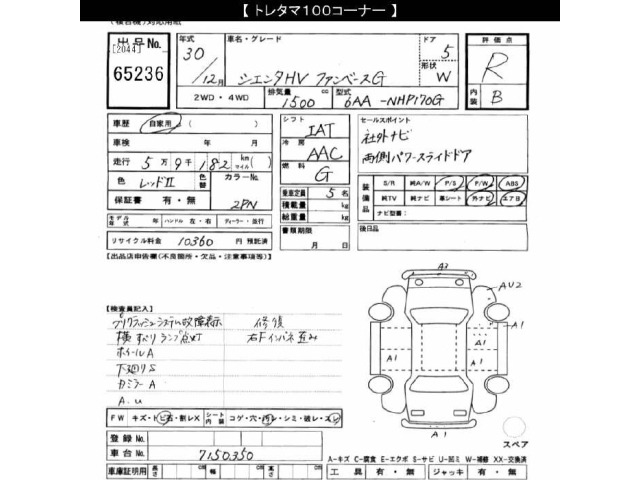 【 トレタマ100コーナー 】
(複合機)対応用紙
出品No.
[2044]
65236
年式
30
/12月
車名・グレード
シエンタHV ファンベースG
ドア
5
形状
W
2WD・4WD
排気量
1500 cc
型式
6AA-NHP170G
評価点
R
内装
B
車歴
自家用 ( )
車検 年 月
走行 5万9千182 km マイル ( )
色 レッドII
色替
カラーNo.
2PN
保証書 有・無
モデル年式 年
ハンドル 左・右
ディーラー・並行
リサイクル料金 10360 円 預託済
シフト
IAT
冷房
AAC
燃料
G
乗車定員 5 名
積載量 kg
総重量 kg
書類期限
月 日
セールスポイント
社外ナビ
両側パワースライドドア
装備品
S/R 純A/W P/S P/W ABS
純TV 純ナビ 革シート 外ナビ エアB
ナビ型番:
後日品
【出品店申告欄(不良箇所・欠品・注意事項等)】
【検査員記入】
プリクラッシュシステム故障表示
横すべりランプ点灯
ホイールA
下廻りS
カミラーA
A.U
修復
右Fインパネ歪み
FW キズ・トビ石・割レX
シート内装 コゲ・穴・汚レ・シミ・破レ・スレ
登録No.
車台No. 7150350
車庫証明用 長さ cm 幅 cm 高さ cm
A3
AU2
A1
A1
A1
A1
スペア
A-キズ C-腐食 E-エクボ S-サビ U-凹ミ W-補修 XX-交換済
工具 有・無 ジャッキ 有・無